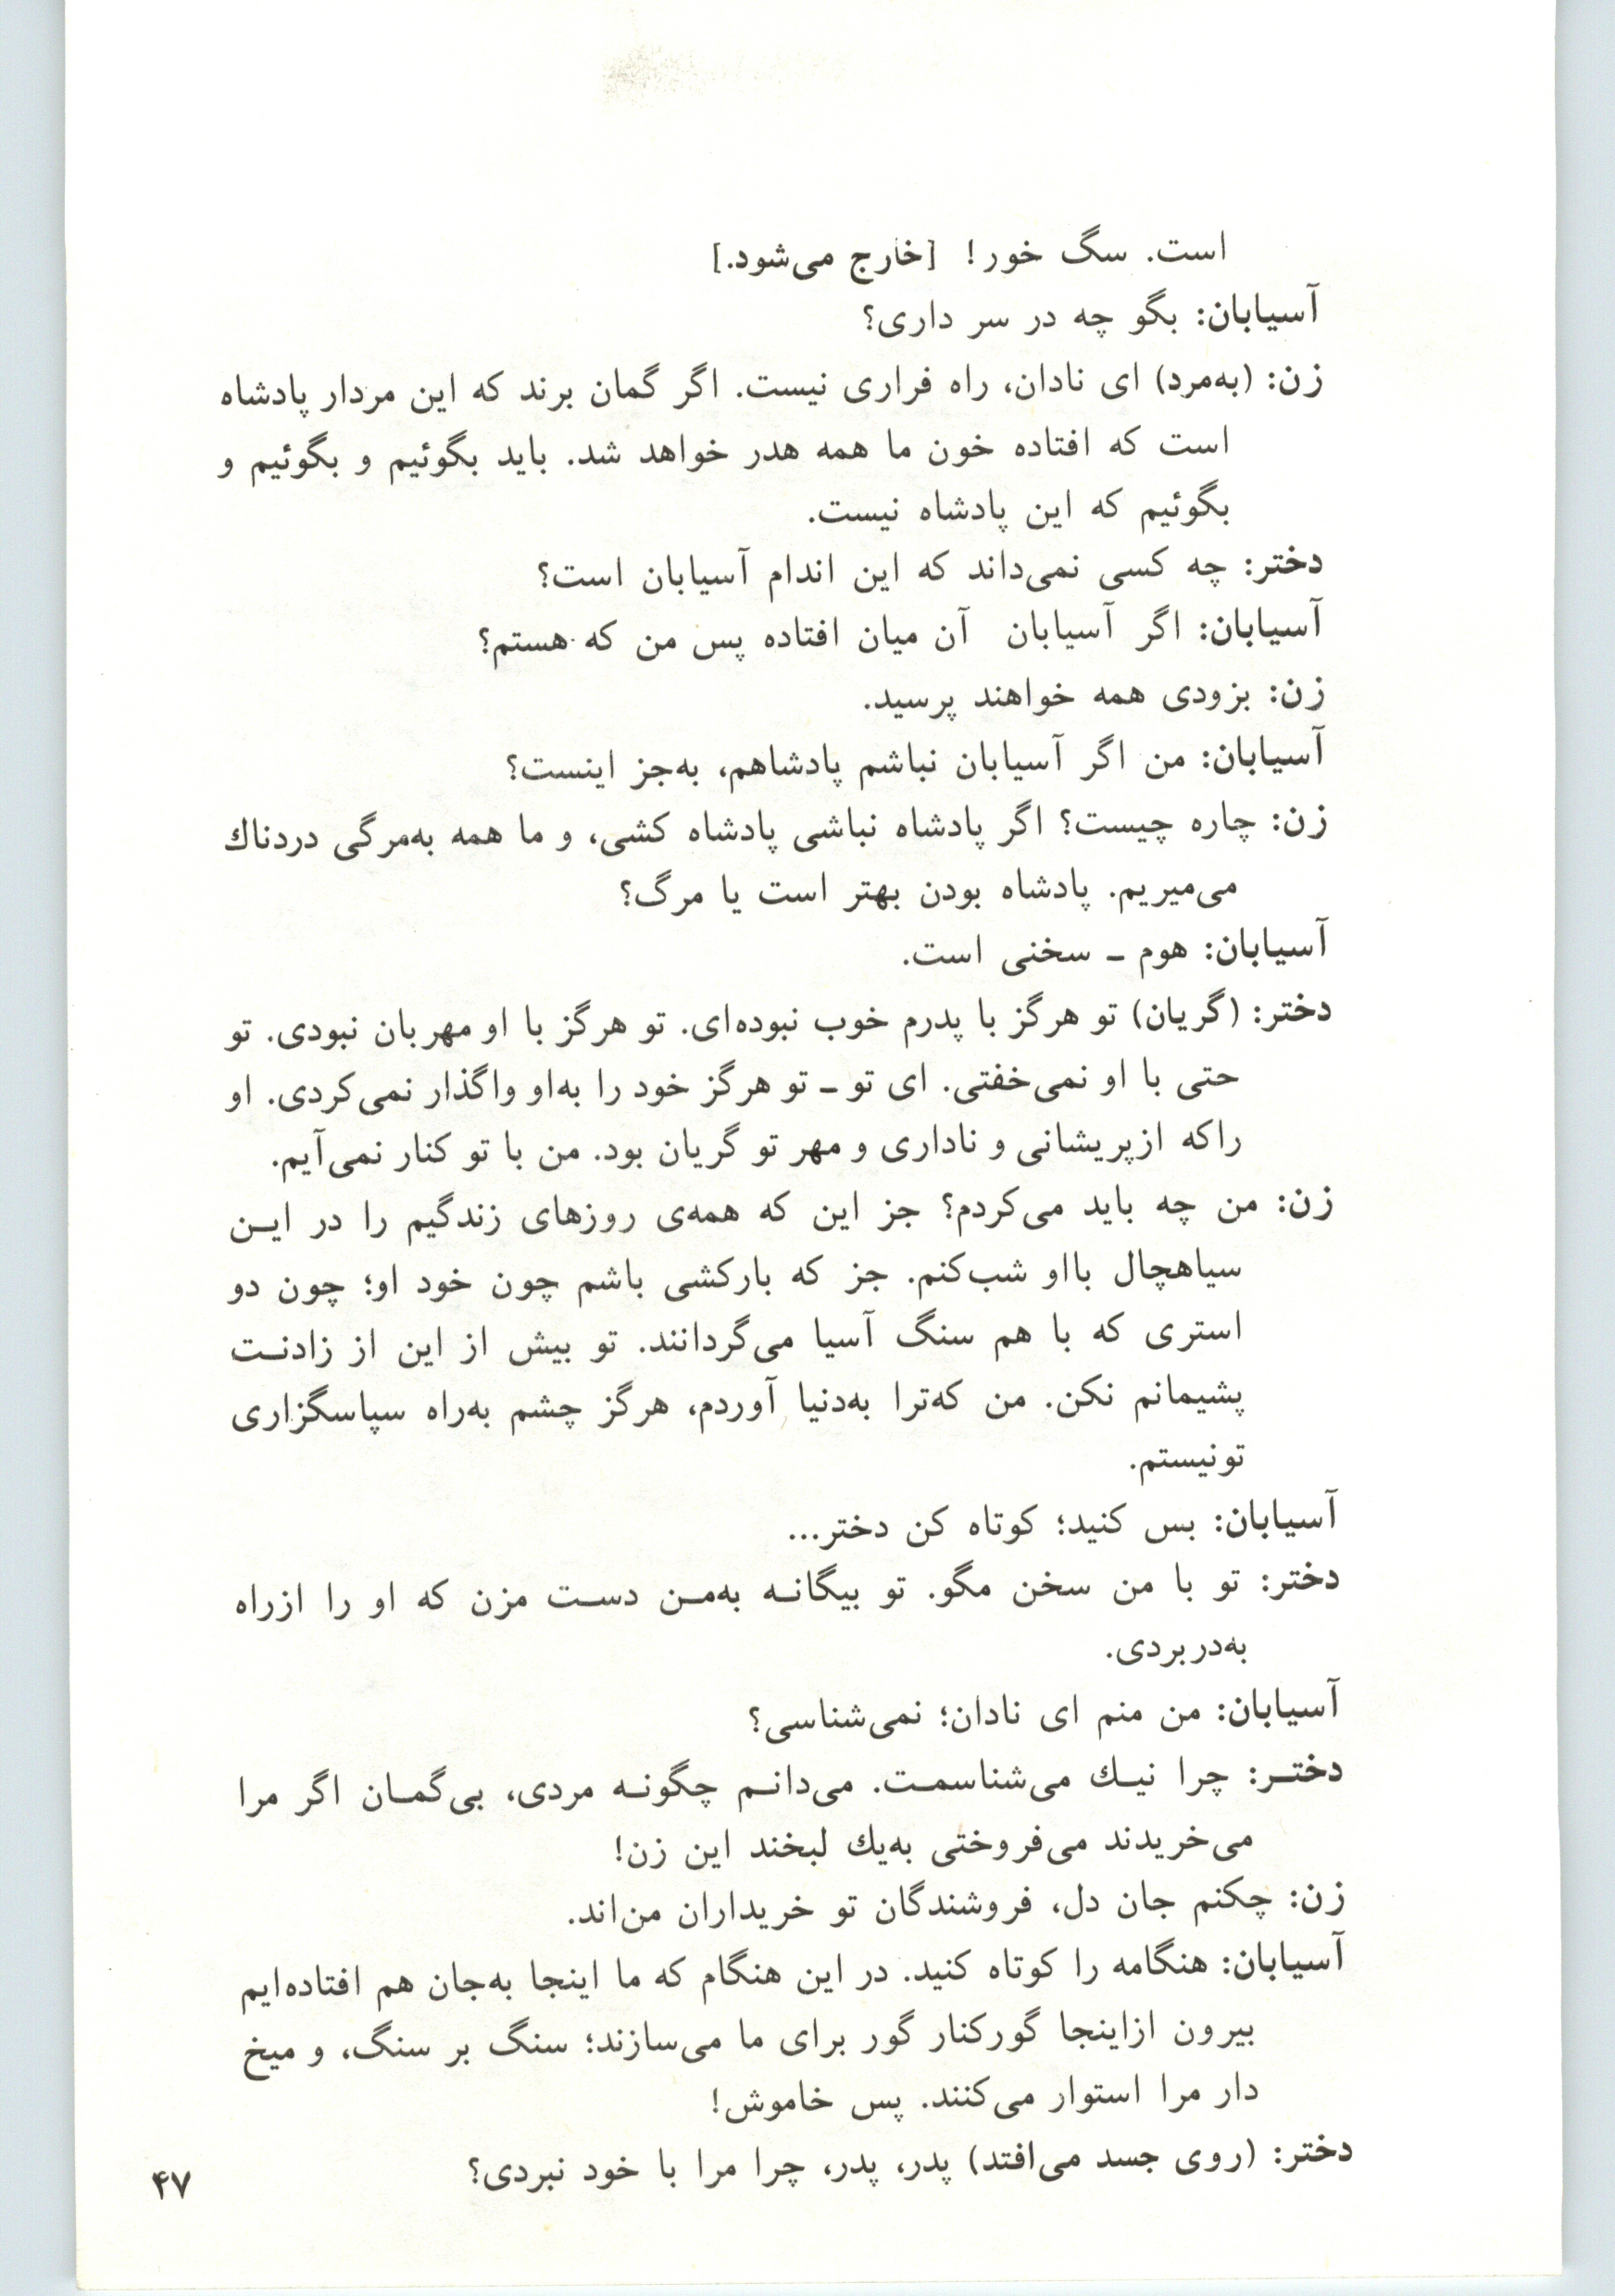 است. سگ خور! [خارج می‌شود.]
آسیابان: بگو چه در سر داری؟
زن: (به‌مرد) ای نادان، راه فراری نیست. اگر گمان برند که این مردار پادشاه
است که افتاده خون ما همه هدر خواهد شد. باید بگوئیم و بگوئیم و
بگوئیم که این پادشاه نیست.
دختر: چه کسی نمی‌داند که این اندام آسیابان است؟
آسیابان: اگر آسیابان آن میان افتاده پس من که هستم؟
زن: بزودی همه خواهند پرسید.
آسیابان: من اگر آسیابان نباشم پادشاهم، به‌جز اینست؟
زن: چاره چیست؟ اگر پادشاه نباشی پادشاه کشی، و ما همه به‌مرگی دردناك
می‌میریم. پادشاه بودن بهتر است یا مرگ؟
آسیابان: هوم ـ سخنی است.
دختر: (گریان) تو هرگز با پدرم خوب نبوده‌ای. تو هرگز با او مهربان نبودی. تو
حتی با او نمی‌خفتی. ای تو ـ تو هرگز خود را به‌او واگذار نمی‌کردی. او
راکه ازپریشانی و ناداری و مهر تو گریان بود. من با تو کنار نمی‌آیم.
زن: من چه باید می‌کردم؟ جز این که همه‌ی روزهای زندگیم را در ایـن
سیاهچال بااو شب‌کنم. جز که بارکشی باشم چون خود او؛ چون دو
استری که با هم سنگ آسیا می‌گردانند. تو بیش از این از زادنـت
پشیمانم نکن. من که‌ترا به‌دنیا آوردم، هرگز چشم به‌راه سپاسگزاری
تونیستم.
آسیابان: بس کنید؛ کوتاه کن دختر...
دختر: تو با من سخن مگو. تو بیگانـه به‌مـن دسـت مزن که او را ازراه
به‌در‌بردی.
آسیابان: من منم ای نادان؛ نمی‌شناسی؟
دختـر: چرا نیـك می‌شناسمـت. می‌دانـم چگونـه مردی، بی‌گمـان اگر مرا
می‌خریدند می‌فروختی به‌یك لبخند این زن!
زن: چکنم جان دل، فروشندگان تو خریداران من‌اند.
آسیابان: هنگامه را کوتاه کنید. در این هنگام که ما اینجا به‌جان هم افتاده‌ایم
بیرون ازاینجا گورکنار گور برای ما می‌سازند؛ سنگ بر سنگ، و میخ
دار مرا استوار می‌کنند. پس خاموش!
دختر: (روی جسد می‌افتد) پدر، پدر، چرا مرا با خود نبردی؟
۴۷